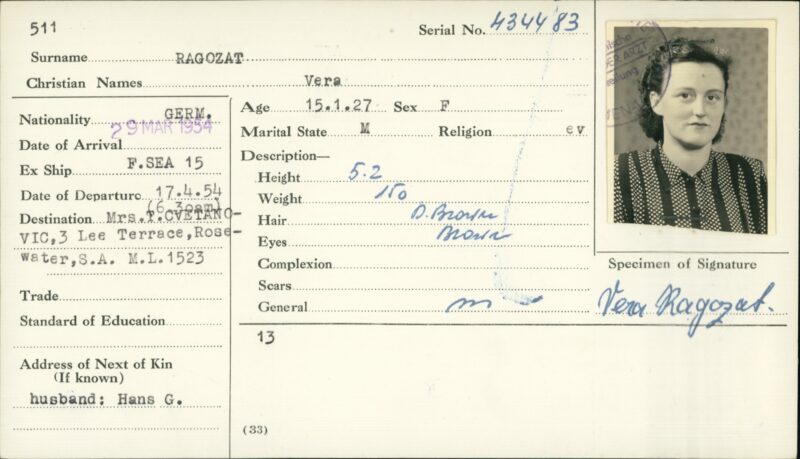 511
Serial No. 434483
Surname RAGOZAT
Christian Names Vera
Nationality GERM.
Date of Arrival 29 MAR 1954
Ex Ship F.SEA 15
Date of Departure 17.4.54
(6.30am)
Destination Mrs.T.CVETANO-
VIC,3 Lee Terrace,Rose-
water,S.A. M.L.1523
Trade
Standard of Education
Address of Next of Kin
(If known)
husband: Hans G.
Age 15.1.27 Sex F
Marital State M Religion ev
Description—
Height 5.2
Weight 150
Hair D. Brown
Eyes Brown
Complexion
Scars
General
13
(33)
Specimen of Signature
Vera Ragozat.